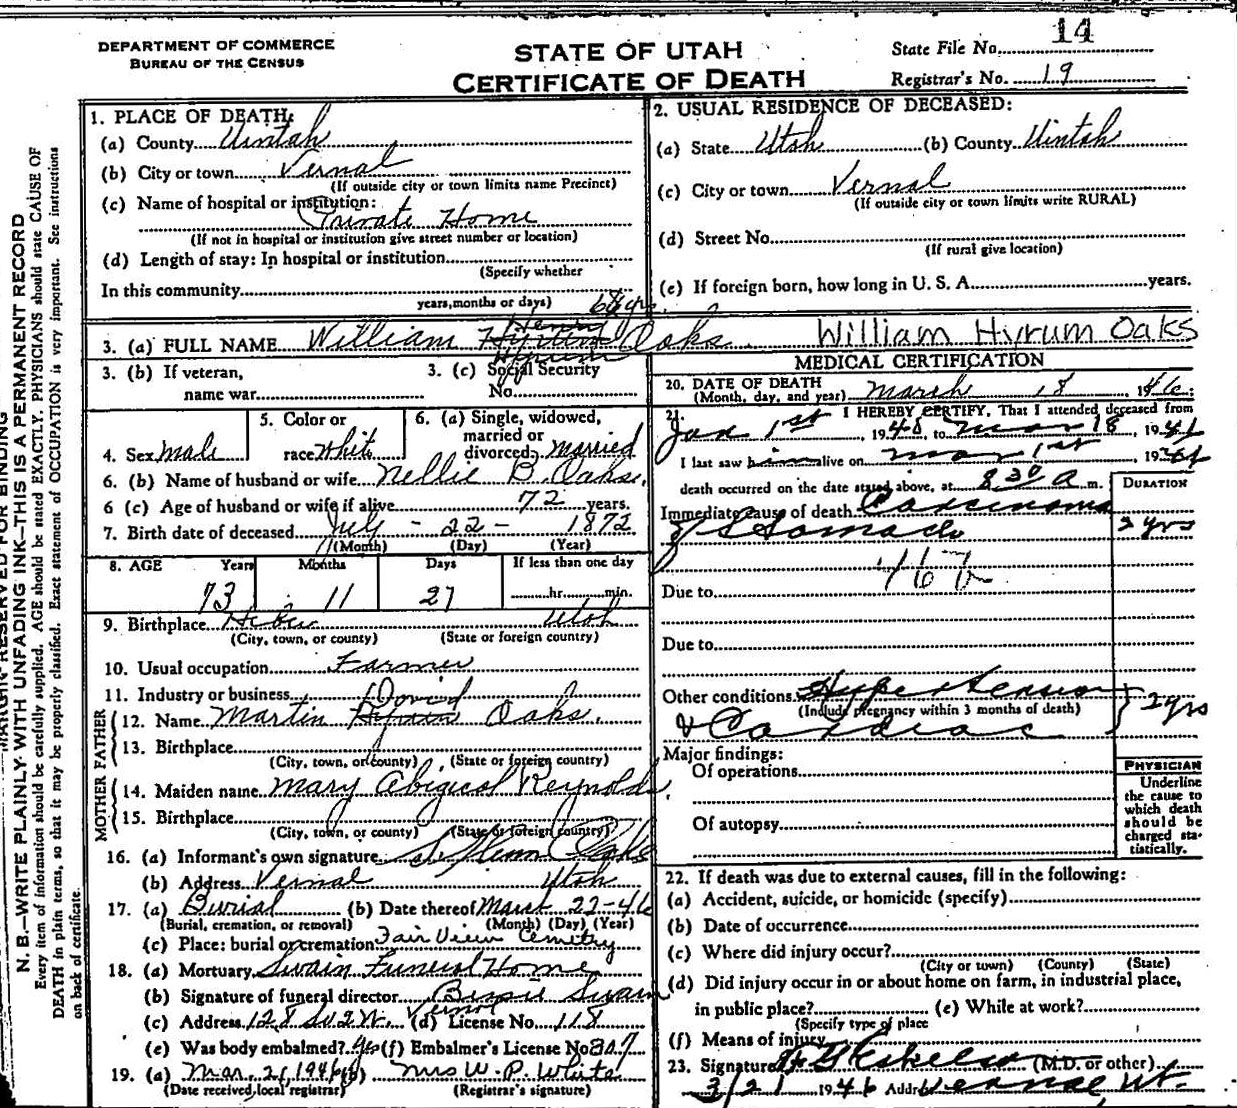 DEPARTMENT OF COMMERCE
BUREAU OF THE CENSUS
STATE OF UTAH
CERTIFICATE OF DEATH
State File No. 14
Registrar's No. 19
MARGIN RESERVED FOR BINDING
N. B.—WRITE PLAINLY WITH UNFADING INK—THIS IS A PERMANENT RECORD
Every item of information should be carefully supplied. AGE should be stated EXACTLY. PHYSICIANS should state CAUSE OF
DEATH in plain terms, so that it may be properly classified. Exact statement of OCCUPATION is very important. See instructions
on back of certificate.
1. PLACE OF DEATH:
(a) County Uintah
(b) City or town Vernal
(If outside city or town limits name Precinct)
(c) Name of hospital or institution:
Private Home
(If not in hospital or institution give street number or location)
(d) Length of stay: In hospital or institution
(Specify whether
In this community
years, months or days) 68 yrs.
2. USUAL RESIDENCE OF DECEASED:
(a) State Utah (b) County Uintah
(c) City or town Vernal
(If outside city or town limits write RURAL)
(d) Street No.
(If rural give location)
(e) If foreign born, how long in U. S. A. years.
Henry
3. (a) FULL NAME William Hyrum Oaks William Hyrum Oaks
Hyrum
3. (b) If veteran,
name war
3. (c) Social Security
No.
4. Sex male
5. Color or
race white
6. (a) Single, widowed,
married or
divorced, married
6. (b) Name of husband or wife Nellie B. Oaks.
6 (c) Age of husband or wife if alive 72 years.
7. Birth date of deceased July - 22 - 1872
(Month) (Day) (Year)
8. AGE Years Months Days If less than one day
73 11 27 hr. min.
9. Birthplace Heber Utah
(City, town, or county) (State or foreign country)
10. Usual occupation Farmer
11. Industry or business
David
FATHER
12. Name Martin Hyrum Oaks.
13. Birthplace
(City, town, or county) (State or foreign country)
MOTHER
14. Maiden name Mary Abigail Reynolds
15. Birthplace
(City, town, or county) (State or foreign country)
16. (a) Informant's own signature Glenn Oaks
(b) Address Vernal Utah
17. (a) Burial (b) Date thereof March 22-46
(Burial, cremation, or removal) (Month) (Day) (Year)
(c) Place: burial or cremation Fair View Cemetry
18. (a) Mortuary Swain Funeral Home
(b) Signature of funeral director Bessie Swain
Vernal
(c) Address 128 So 2 W. (d) License No. 118
(e) Was body embalmed? yes (f) Embalmer's License No 307
19. (a) Mar. 21, 1946 (b) Mrs W. P. White
(Date received local registrar) (Registrar's signature)
MEDICAL CERTIFICATION
20. DATE OF DEATH
(Month, day, and year) March 18 1946
21. I HEREBY CERTIFY, That I attended deceased from
Jan 1st, 19 to Mar 18, 19
I last saw him alive on Mar 1st 19
death occurred on the date stated above, at 8 30 a m.
DURATION
Immediate cause of death Carcinoma
of Stomach 2 yrs
Due to
Due to
Other conditions Hypertension
(Include pregnancy within 3 months of death)
& Cardiac 2 yrs
Major findings:
Of operations
Of autopsy
PHYSICIAN
Underline
the cause to
which death
should be
charged sta-
tistically.
22. If death was due to external causes, fill in the following:
(a) Accident, suicide, or homicide (specify)
(b) Date of occurrence
(c) Where did injury occur?
(City or town) (County) (State)
(d) Did injury occur in or about home on farm, in industrial place,
in public place? (e) While at work?
(Specify type of place
(f) Means of injury
23. Signature (M.D. or other)
3/21 1946 Addr Vernal Ut.